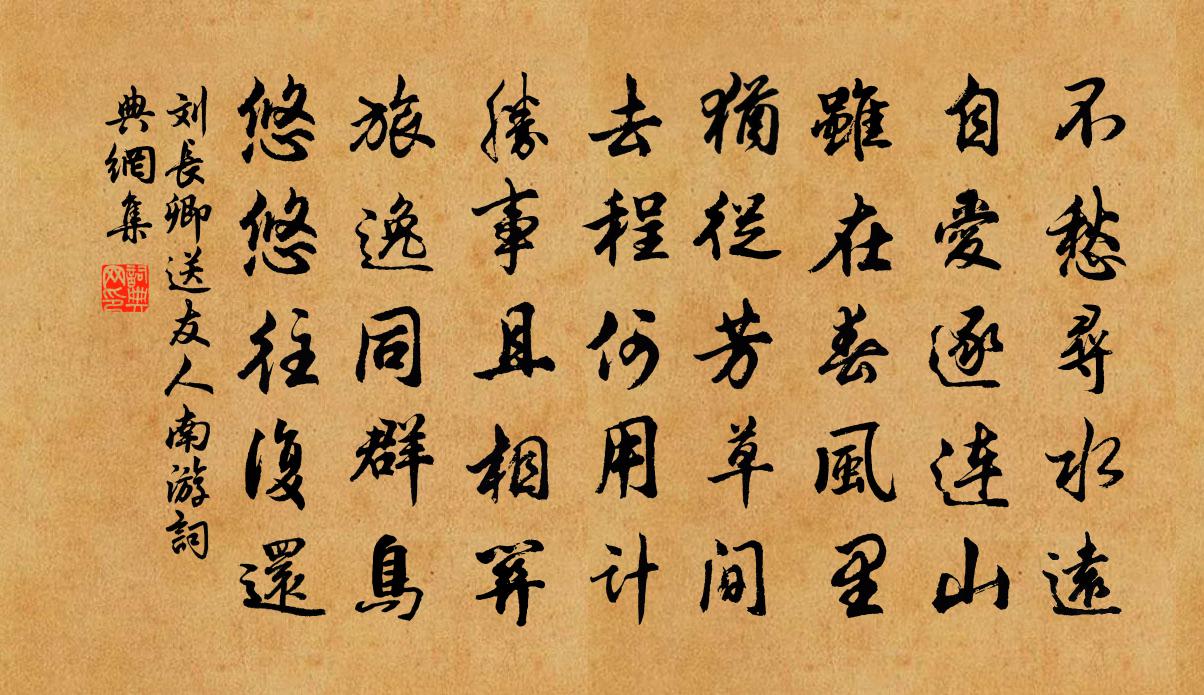 不愁尋水遠
自愛逐連山
雖在春風里
猶從芳草間
去程何用计
勝事且相關
旅逸同群鳥
悠悠往復還
刘長卿送友人南游詞
典網集
詞典
网印